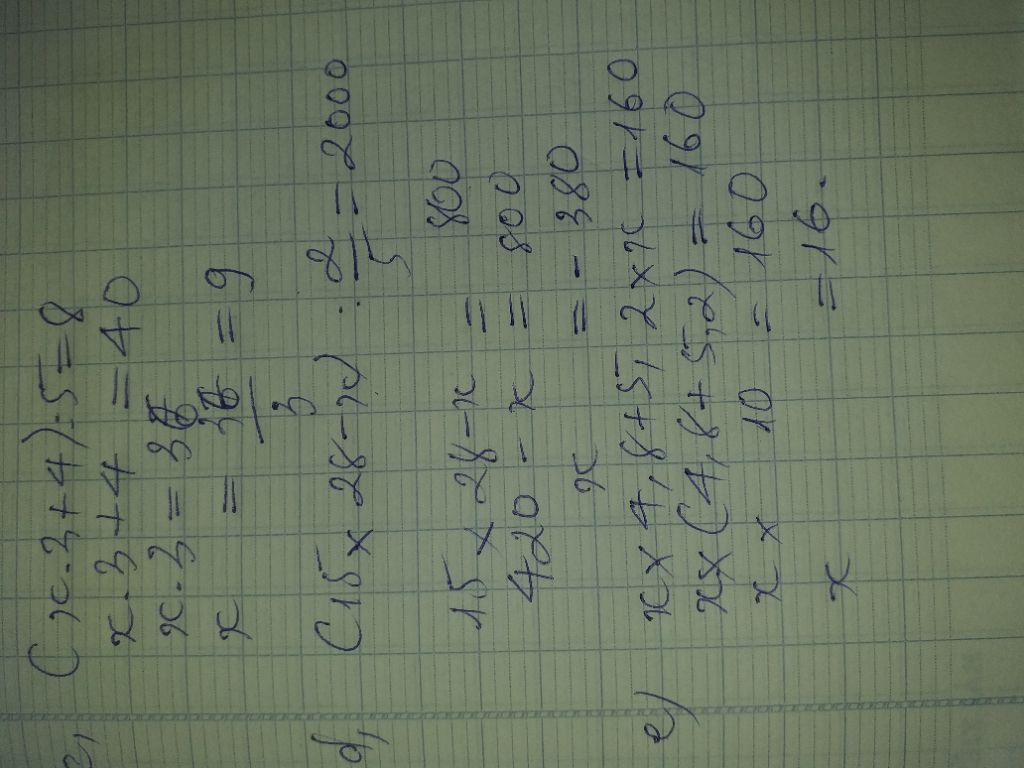 c, (x.3+4):5=8
x.3+4=40
x.3=36
x = 36/3 = 9
d, (15 x 28-x) : 2/5 = 2000
15 x 28-x = 800
420 - x = 800
x = -380
e) x x 4,8+5,2 x x = 160
x x (4,8+5,2) = 160
x x 10 = 160
x = 16.